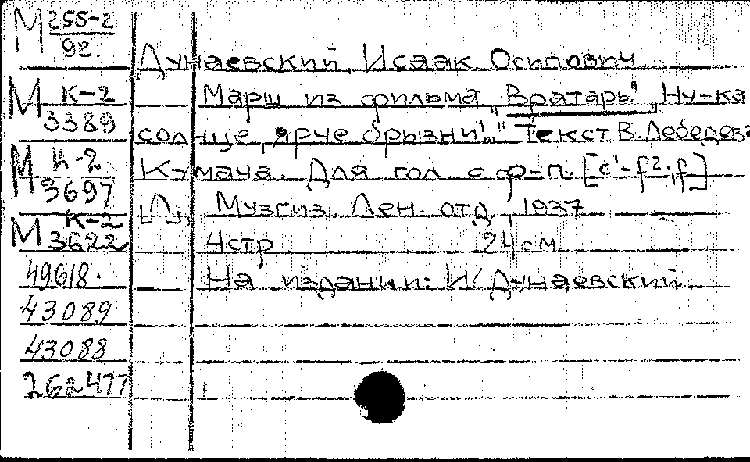 М 255-2
92
М К-2
3389
М К-2
3697
М К-2
3622
49618.
43089
43088
262477
Дунаевский, Исаак Осипович
Марш из фильма "Вратарь". "Ну-ка
солнце, ярче брызни!.." Текст В. Лебедева-
Кумача. Для гол. с ф-п. [c¹-f²; f]
[Л.], Музгиз, Лен. отд., 1937
4 стр. 24 см.
На издании: И. Дунаевский.